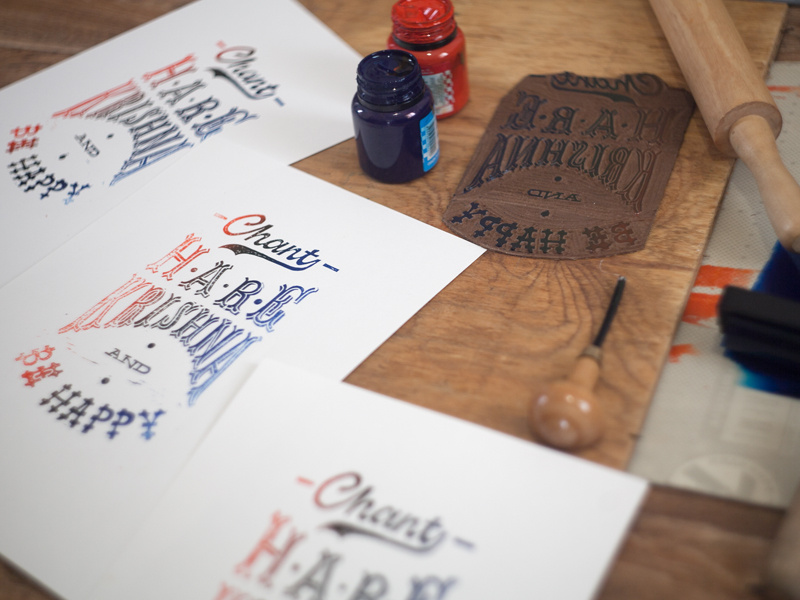 Chant
HARE
KRISHNA
AND
BE
HAPPY
Chant
H·A·R·E
KRISHNA
AND
BE
HAPPY
Chant
H·A·R·E
Chant
H·A·R·E
KRISHNA
AND
BE
HAPPY